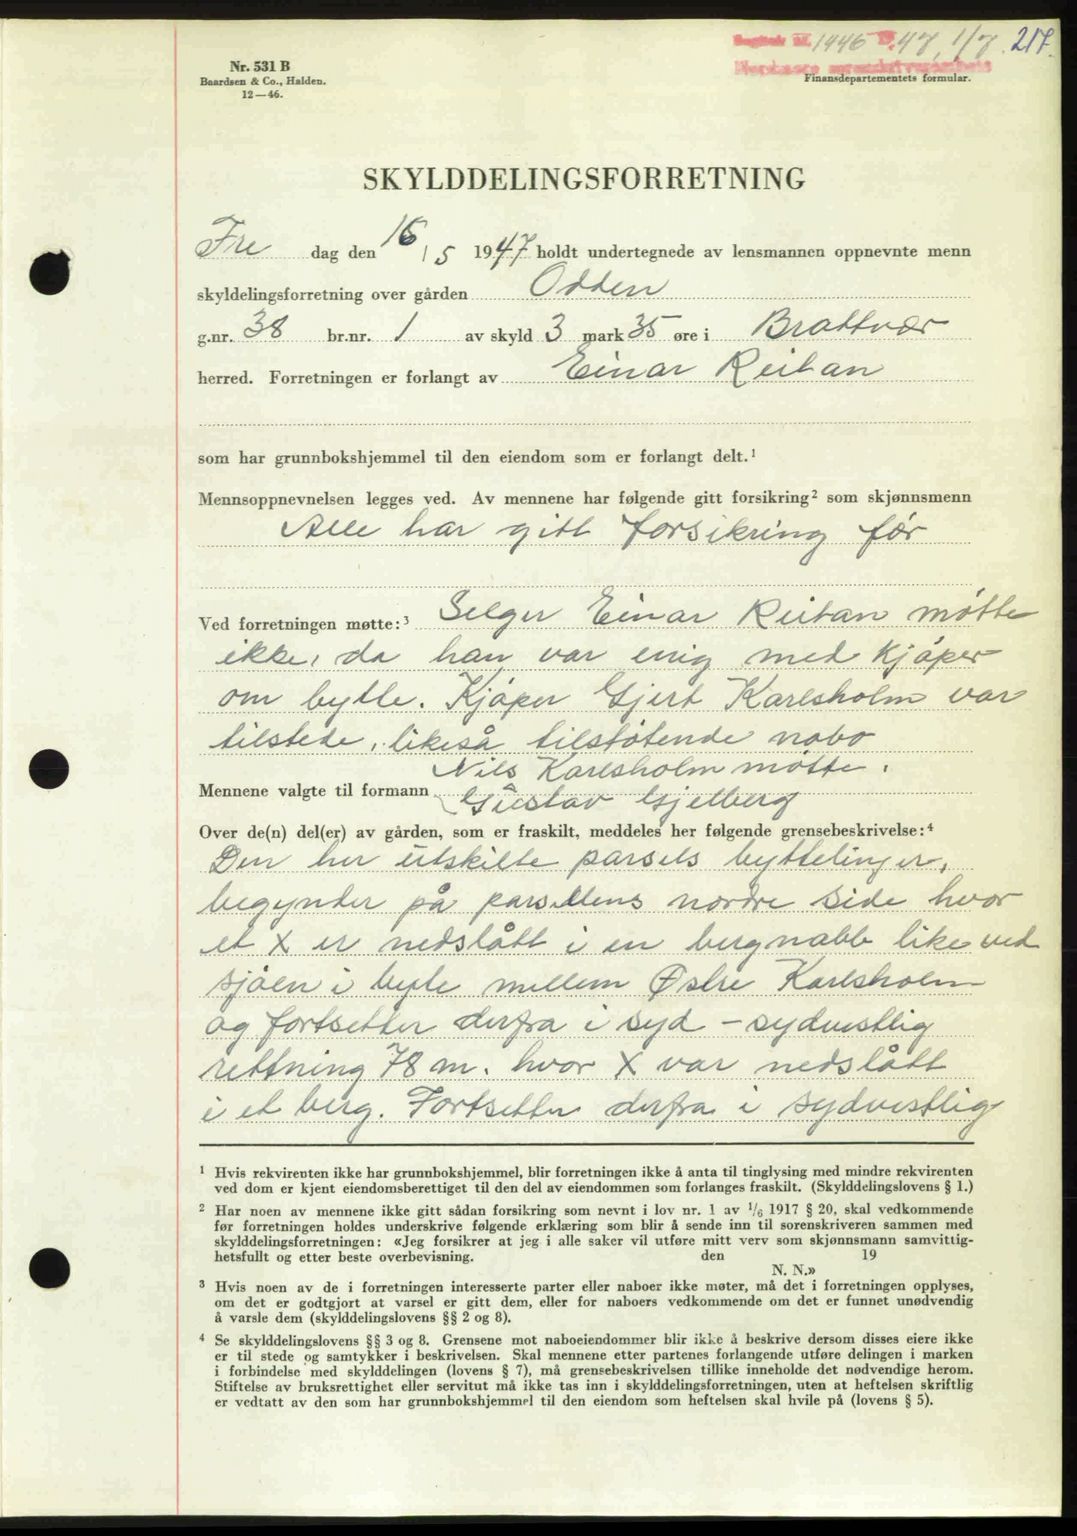 1446 47, 1/7 217.
Nr. 531 B
Baardsen & Co., Halden.
12—46.
Finansdepartementets formular.
SKYLDDELINGSFORRETNING
Fre dag den 16/5 1947 holdt undertegnede av lensmannen oppnevnte menn
skyldelingsforretning over gården Odden
g.nr. 38 br.nr. 1 av skyld 3 mark 35 øre i Brattvær
herred. Forretningen er forlangt av Einar Reitan
som har grunnbokshjemmel til den eiendom som er forlangt delt.¹
Mennsoppnevnelsen legges ved. Av mennene har følgende gitt forsikring² som skjønnsmenn
Alle har gitt forsikring før
Ved forretningen møtte:³ Selger Einar Reitan møtte
ikke, da han var enig med kjøper
om bytte. Kjøper Gjert Karlsholm var
tilstede, likeså tilstøtende nabo
Nils Karlsholm møtte.
Mennene valgte til formann Gustav Gjelberg
Over de(n) del(er) av gården, som er fraskilt, meddeles her følgende grensebeskrivelse:⁴
Den her utskilte parsels byttelinjer,
begynder på parsellens nordre side hvor
et X er nedslått i en bergnabb like ved
sjøen i byte mellem Østre Karlsholm
og fortsetter derfra i syd - sydvestlig
rettning 78 m. hvor X var nedslått
i et berg. Fortsetter derfra i sydvestlig
¹ Hvis rekvirenten ikke har grunnbokshjemmel, blir forretningen ikke å anta til tinglysing med mindre rekvirenten
ved dom er kjent eiendomsberettiget til den del av eiendommen som forlanges fraskilt. (Skylddelingslovens § 1.)
² Har noen av mennene ikke gitt sådan forsikring som nevnt i lov nr. 1 av 1/6 1917 § 20, skal vedkommende
før forretningen holdes underskrive følgende erklæring som blir å sende inn til sorenskriveren sammen med
skylddelingsforretningen: «Jeg forsikrer at jeg i alle saker vil utføre mitt verv som skjønnsmann samvittig-
hetsfullt og etter beste overbevisning. den 19
N. N.»
³ Hvis noen av de i forretningen interesserte parter eller naboer ikke møter, må det i forretningen opplyses,
om det er godtgjort at varsel er gitt dem, eller for naboers vedkommende om det er funnet unødvendig
å varsle dem (skylddelingslovens §§ 2 og 8).
⁴ Se skylddelingslovens §§ 3 og 8. Grensene mot naboeiendommer blir ikke å beskrive dersom disses eiere ikke
er til stede og samtykker i beskrivelsen. Skal mennene etter partenes forlangende utføre delingen i marken
i forbindelse med skylddelingen (lovens § 7), må grensebeskrivelsen tillike inneholde det nødvendige herom.
Stiftelse av bruksrettighet eller servitut må ikke tas inn i skylddelingsforretningen, uten at heftelsen skriftlig
er vedtatt av den som har grunnbokshjemmel til den eiendom som heftelsen skal hvile på (lovens § 5).